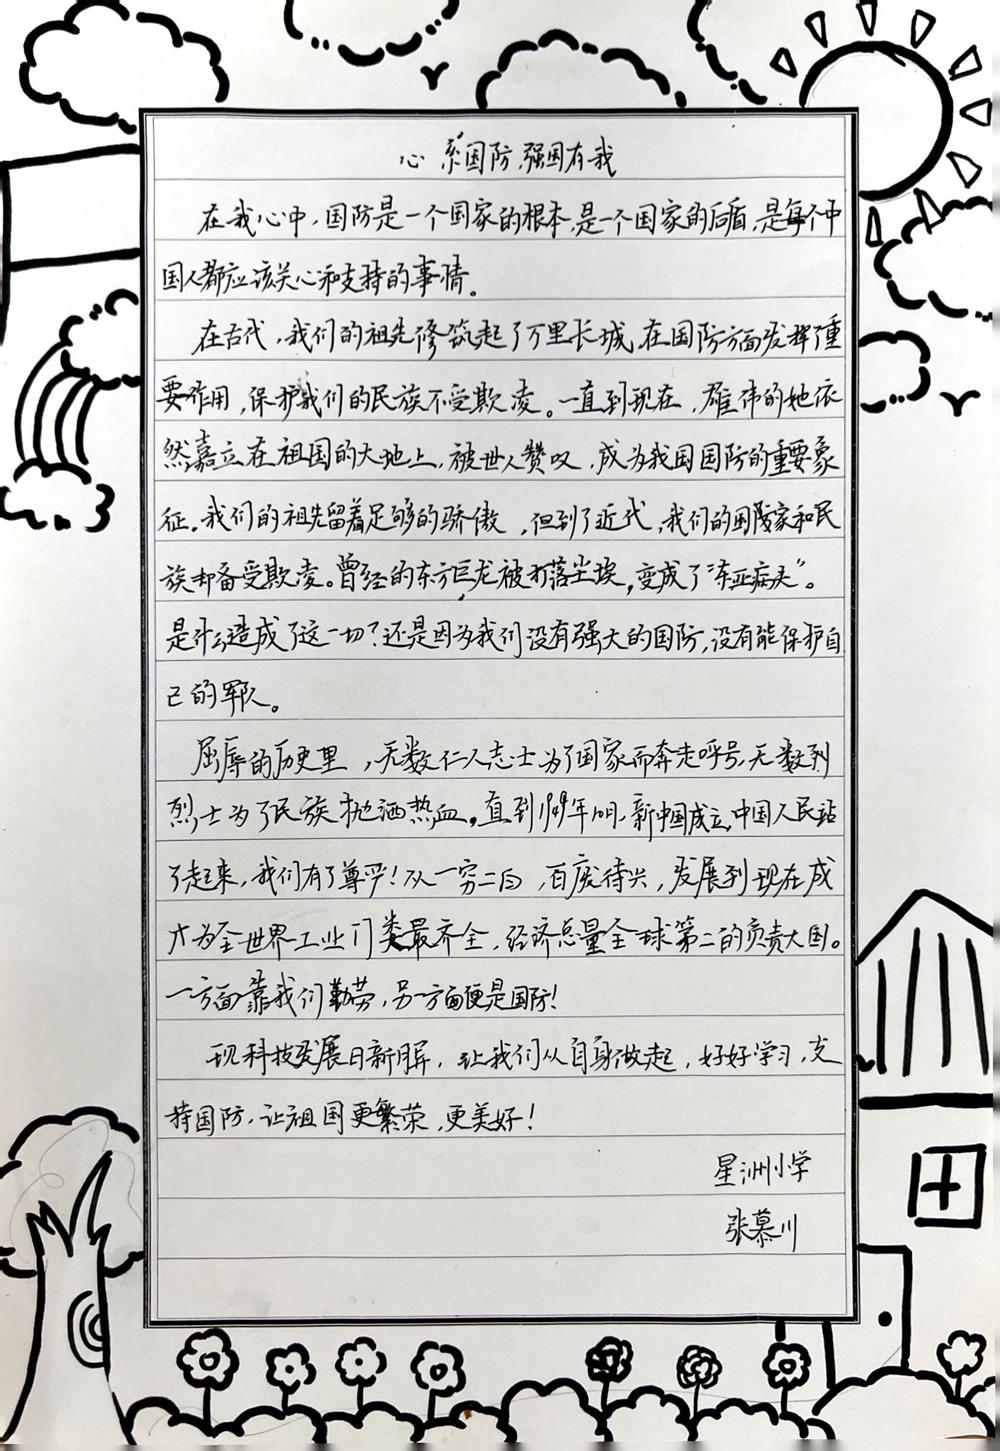 心系国防,强国有我
在我心中,国防是一个国家的根本,是一个国家的后盾,是每个中
国人都应该关心和支持的事情。
在古代,我们的祖先修筑起了万里长城,在国防方面发挥了重
要作用,保护我们的民族不受欺凌。一直到现在,雄伟的她依
然嘉立在祖国的大地上,被世人赞叹,成为我国国防的重要象
征。我们的祖先留着足够的骄傲,但到了近代,我们的国家和民
族却备受欺凌。曾经的东方巨龙被打落尘埃,变成了“东亚病夫”。
是什么造成了这一切?还是因为我们没有强大的国防,没有能保护自
己的军队。
屈辱的历史里,无数仁人志士为了国家而奔走呼号,无数列
烈士为了民族抛洒热血。直到1949年10月,新中国成立,中国人民站
了起来,我们有了尊严!从一穷二白,百废待兴,发展到现在成
为全世界工业门类最齐全,经济总量全球第二的负责大国。
一方面靠我们勤劳,另一方面便是国防!
现科技发展日新月异,让我们从自身做起,好好学习,支
持国防,让祖国更繁荣,更美好!
星洲小学
张慕川